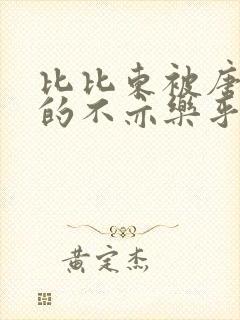 比比东被唐
的不亦乐乎
黄定杰